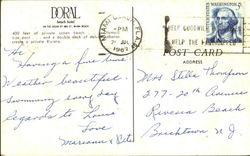 DORAL
beach hotel
ON THE OCEAN AT 48th ST., MIAMI BEACH
400 feet of private ocean beach
and a double deck of
create a private Riviera.
Hi
Having a fine time!
Weather beautiful.
Swimming every day
Regards to Louis
Love
Marieann & Pete
MIAMI BEACH, FLA.
PM
1967
WASHINGTON
5¢
HELP GOODWILL
HELP THE HANDICAPPED
POST CARD
ADDRESS
Mrs Stella Thompson
277-20th Avenue
Bricktown N.J.